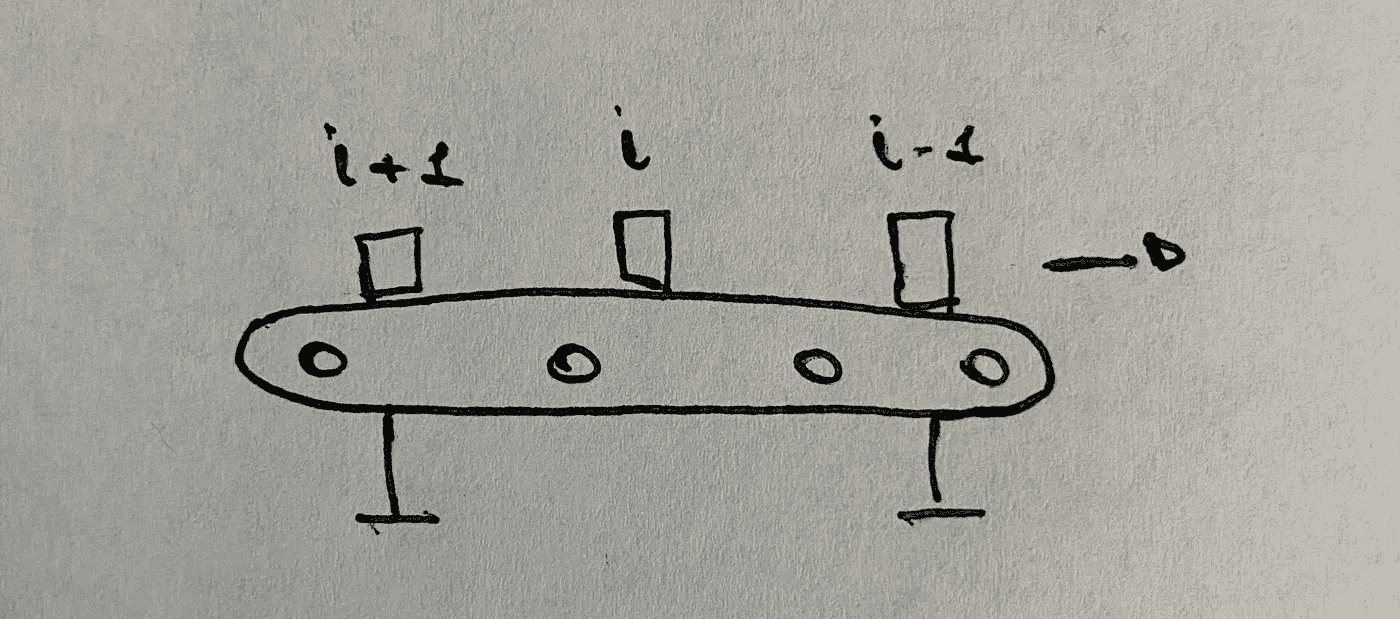 i+1 i i-1